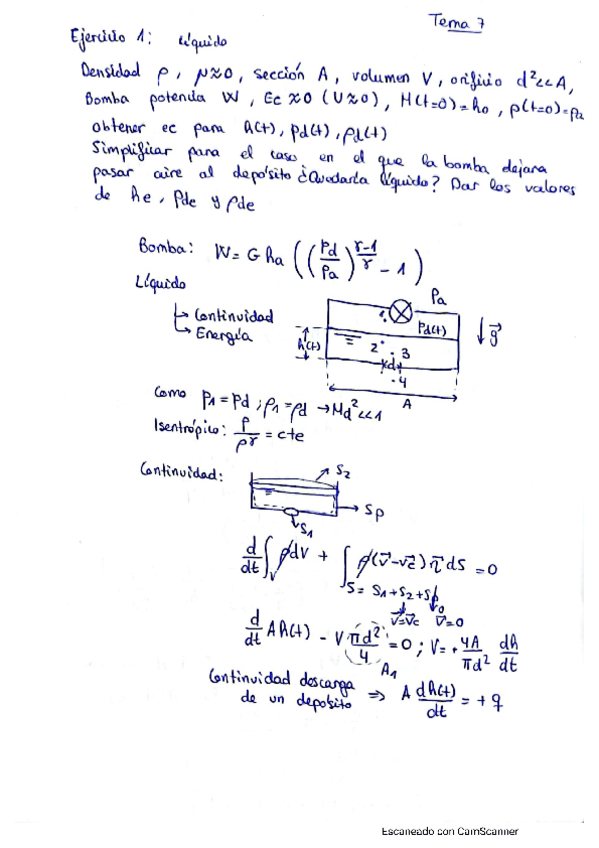 Tema 7
Ejercicio 1: Líquido
Densidad ρ, μ≈0, sección A, volumen V, orificio d²<<A,
Bomba potencia W, Ec≈0 (U≈0), H(t=0)=h₀, p(t=0)=pa
obtener ec para h(t), pd(t), ρd(t)
Simplificar para el caso en el que la bomba dejara
pasar aire al depósito ¿Quedaría líquido? Dar los valores
de he, Pde y ρde
Bomba: W = G ha ((Pd/Pa)^(γ-1/γ) - 1)
Líquido
↳ Continuidad
↳ Energía
Pa
1.
Pd(t)
h(t)
2
3
d
4
A
g
Como p1 = pd ; ρ1 = ρd → Md²<<1
Isentrópico: p/ρ^γ = cte
Continuidad:
S2
Sp
S1
d/dt ∫v ρdV + ∫ ρ(v-vc) n dS = 0
S = S1+S2+Sp
v=vc v=0
d/dt A h(t) - V πd²/4 = 0 ; V = + 4A/πd² dh/dt
A1
Continuidad descarga
de un depósito ⇒ A dh(t)/dt = + q
Escaneado con CamScanner